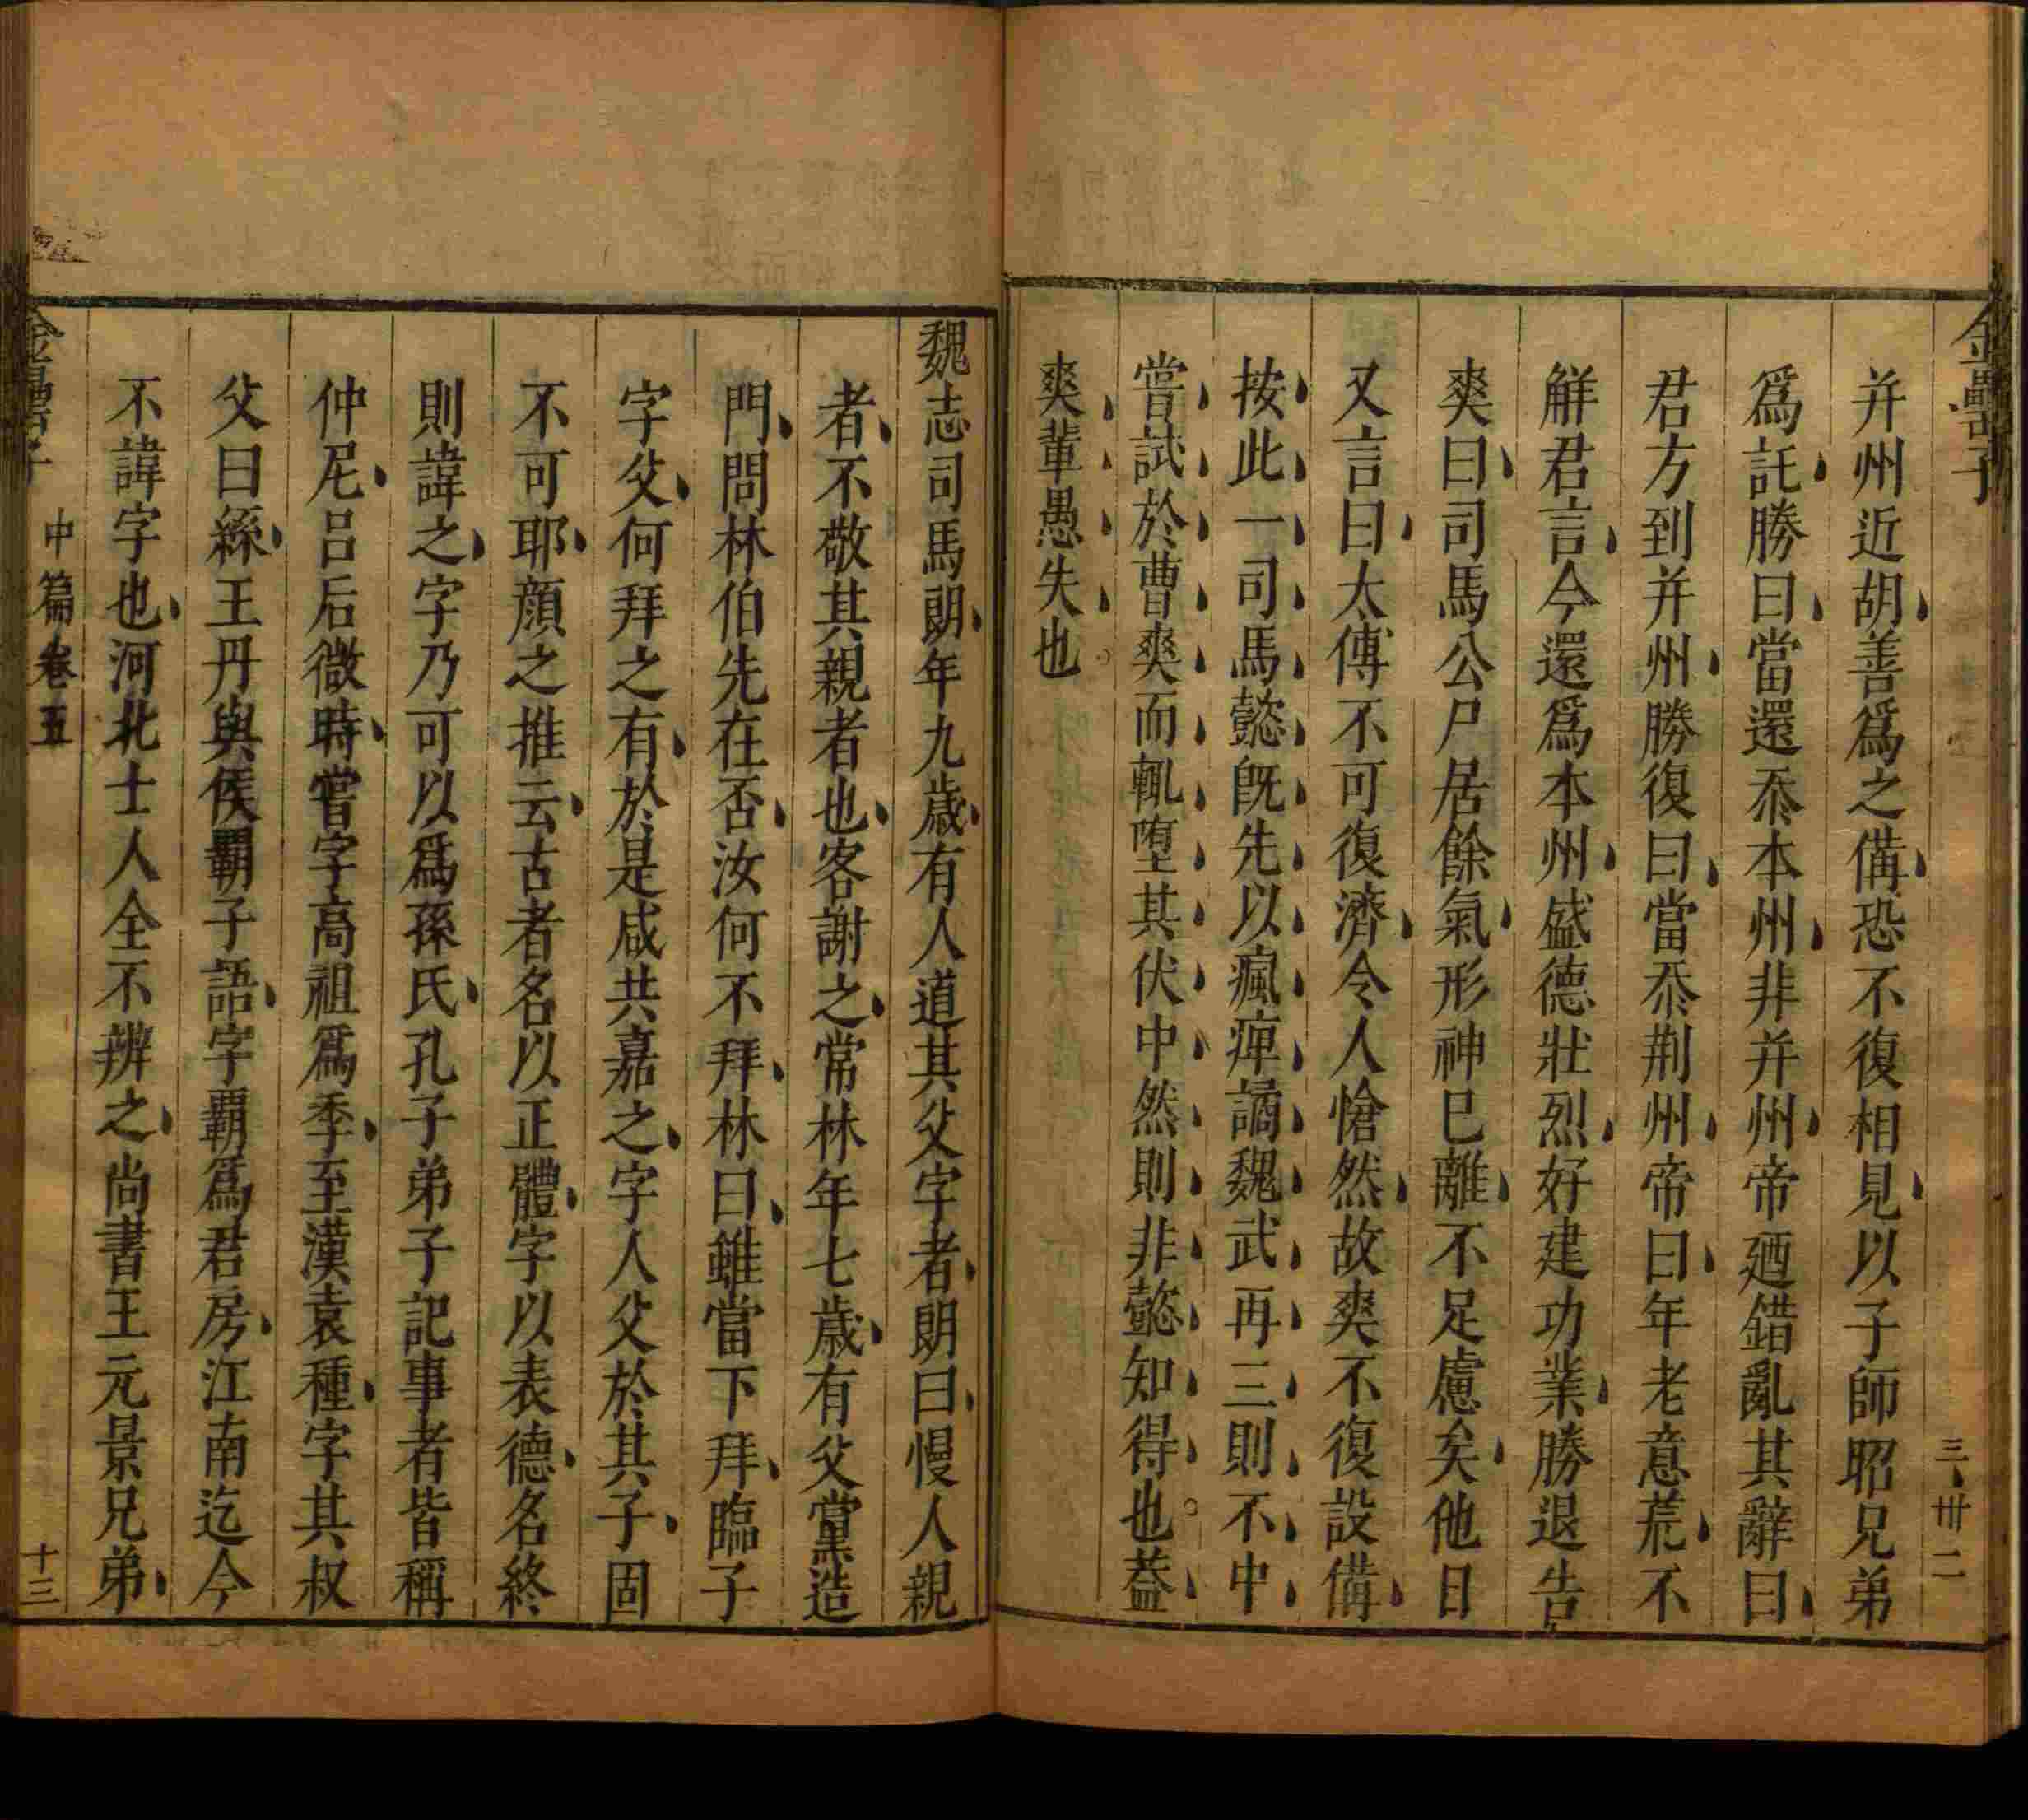 金罍子
三卅二
并州近胡善爲之備恐不復相見以子師昭兄弟
爲託勝曰當還忝本州非并州帝廼錯亂其辭曰
君方到并州勝復曰當忝荆州帝曰年老意荒不
解君言今還爲本州盛德壯烈好建功業勝退告
爽曰司馬公尸居餘氣形神已離不足慮矣他日
又言曰太傅不可復濟令人愴然故爽不復設備
按此一司馬懿旣先以瘋痺譎魏武再三則不中
嘗試於曹爽而輒墮其伏中然則非懿知得也葢
爽輩愚失也。
魏志司馬朗年九歲有人道其父字者朗曰慢人親
者不敬其親者也客謝之常林年七歲有父黨造
門問林伯先在否汝何不拜林曰雖當下拜臨子
字父何拜之有於是咸共嘉之字人父於其子固
不可耶顏之推云古者名以正體字以表德名終
則諱之字乃可以爲孫氏孔子弟子記事者皆稱
仲尼呂后微時嘗字高祖爲季至漢袁種字其叔
父曰絲王丹與侯霸子語字霸爲君房江南迄今
不諱字也河北士人全不辨之尚書王元景兄弟
金罍子 中篇卷五 十三